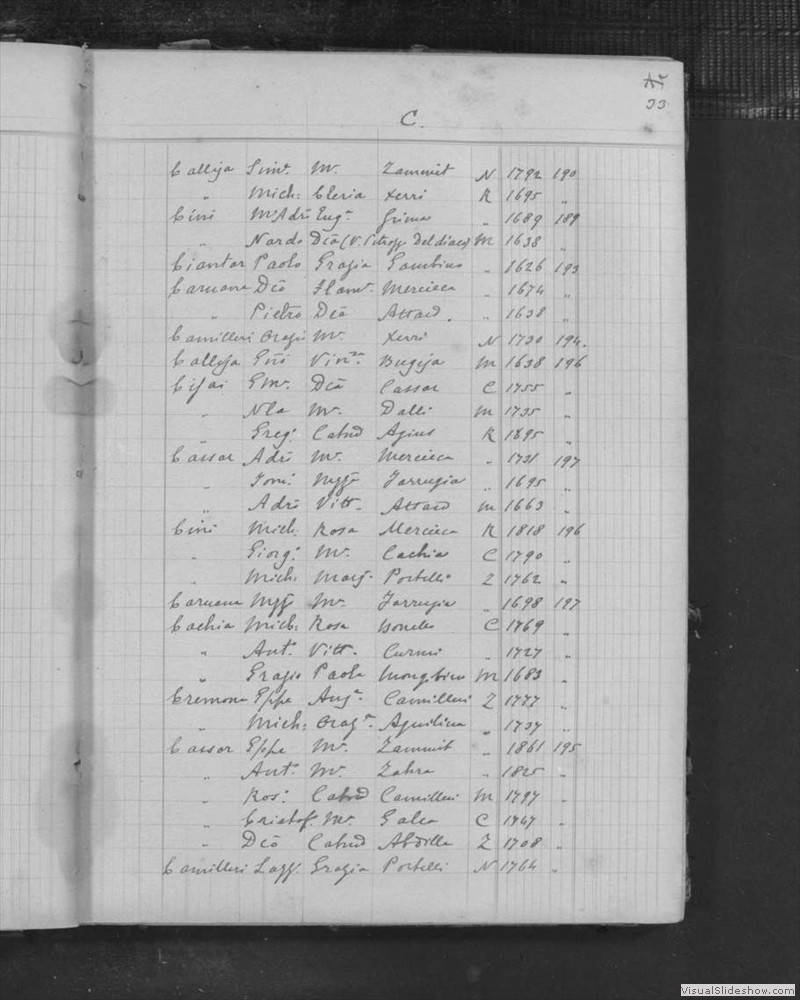 33
C.
Calleja Simᵉ. Mᵃ. Zammit N 1792 190
„ Mich: Cleria Xerri R 1695 „
Cini Mᵒ Adrō Eugᵃ. Grima „ 1689 189
„ Nardo Dcā (V. del diaco) M 1638 „
Ciantar Paolo Grazia Gambino „ 1626 193
Caruana Dcō Flamᵃ. Mercieca „ 1674 „
„ Pietro Dcā Attard. „ 1638 „
Camilleri Orazio Mᵃ. Xerri N 1730 194.
Calleja Gñō Vinᶻᵃ Bugeja M 1638 196
Cifai Emᵉ. Dcā Cassar C 1755 „
„ Nla Mᵃ. Dalli M 1735 „
„ Gregᵒ Catnᵈ Agius R 1695 „
Cassar Adrō Mᵃ. Mercieca „ 1731 197
„ Tomᵒ Farrugia „ 1695 „
„ Adrō Vittᵃ. Attard M 1663 „
Cini Mich: Rosa Mercieca R 1818 196
„ Giorgᵒ Mᵃ. Cachia C 1790 „
„ Mich: Margᵃ. Portelli Z 1762 „
Caruana Mᵃ. Farrugia „ 1698 197
Cachia Mich: Rosa Bonello C 1769 „
„ Antᵒ Vittᵃ. Curmi „ 1727 „
„ Grazio Paola Mongebino M 1683 „
Cremona Gppe Angᵃ. Camilleri Z 1777 „
„ Mich: Orazᵃ. Aquilina „ 1737 „
Cassar Gppe Mᵃ. Zammit „ 1861 195
„ Antᵒ Mᵃ. Zahra „ 1825 „
„ Rosᵒ Catnᵈ Camilleri M 1797 „
„ Cristof. Mᵃ. Galea C 1747 „
„ Dcō Catnᵈ Abdilla Z 1708 „
Camilleri Lazz. Grazia Portelli N 1764 „
VisualSlideshow.com